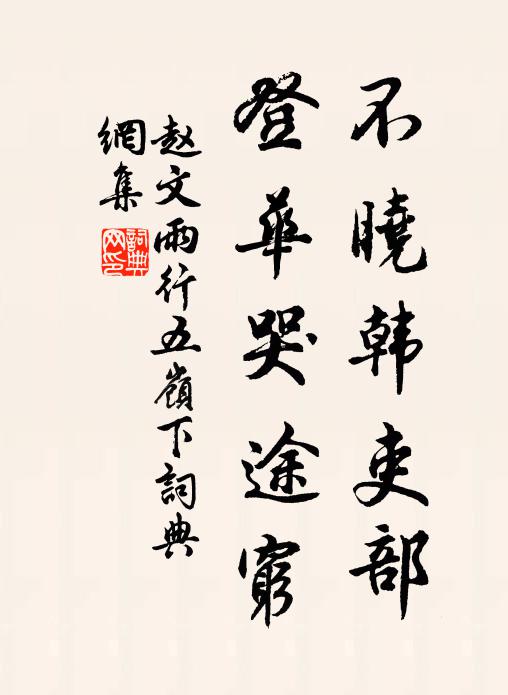 不曉韩吏部
登華哭途窮
赵文雨行五嶺下詞典
網集
詞典
网印